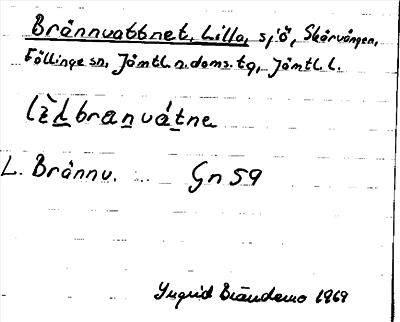 Brännvattnet, Lilla, sjö, Skärvången,
Föllinge sn, Jämtl. n. doms. tg, Jämtl. l.
lìł branvátne
L. Brännv. ... Gn 59
Ingrid Brändemo 1969